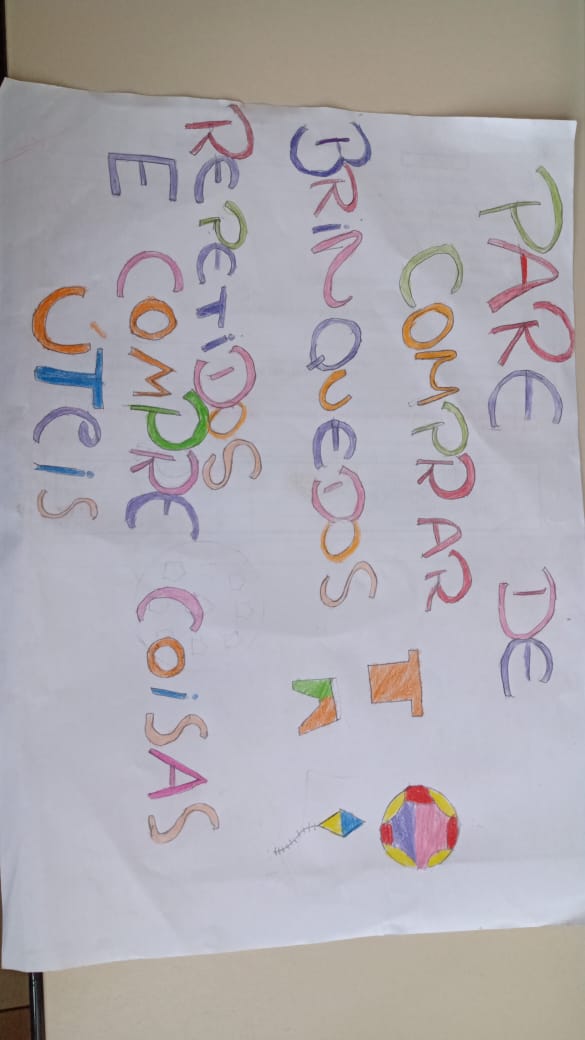 PARE DE
COMPRAR
BRINQUEDOS
REPETIDOS
E COMPRE COISAS
ÚTEIS